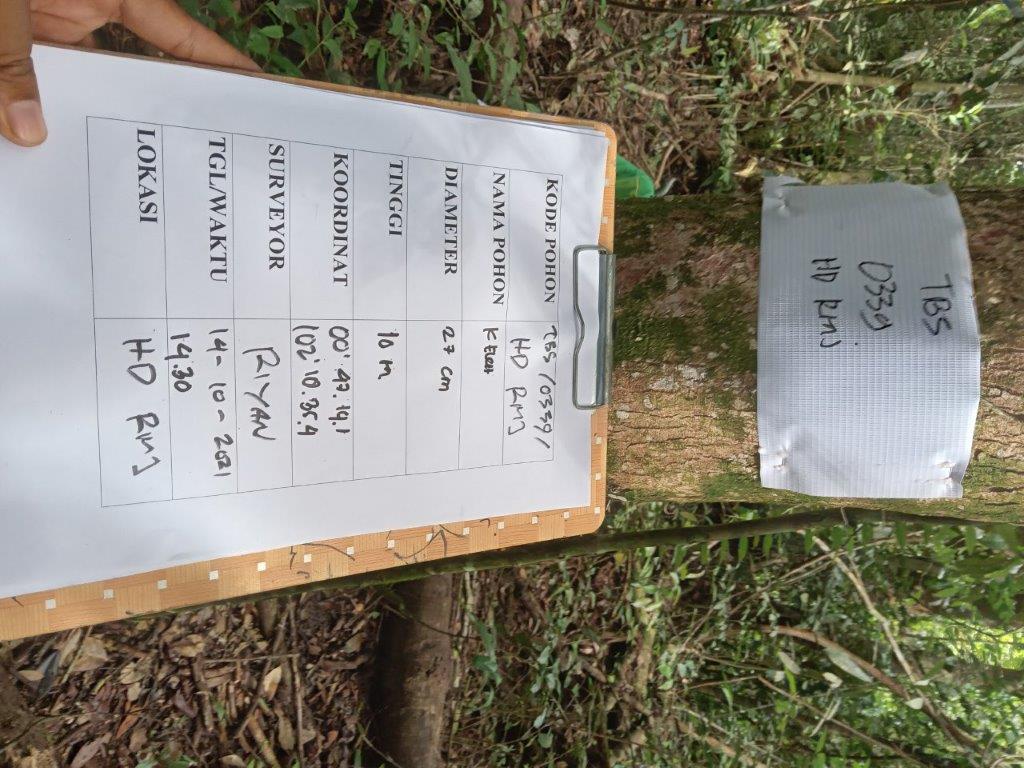 TBS
0339
HD RMJ
KODE POHON TBS / 0339 /
HD RMJ
NAMA POHON KELEH
DIAMETER 27 cm
TINGGI 10 m
KOORDINAT 00' 47.14.1
102' 10.35.4
SURVEYOR RIYAN
TGL/WAKTU 14 - 10 - 2021
14.30
LOKASI HD RMJ